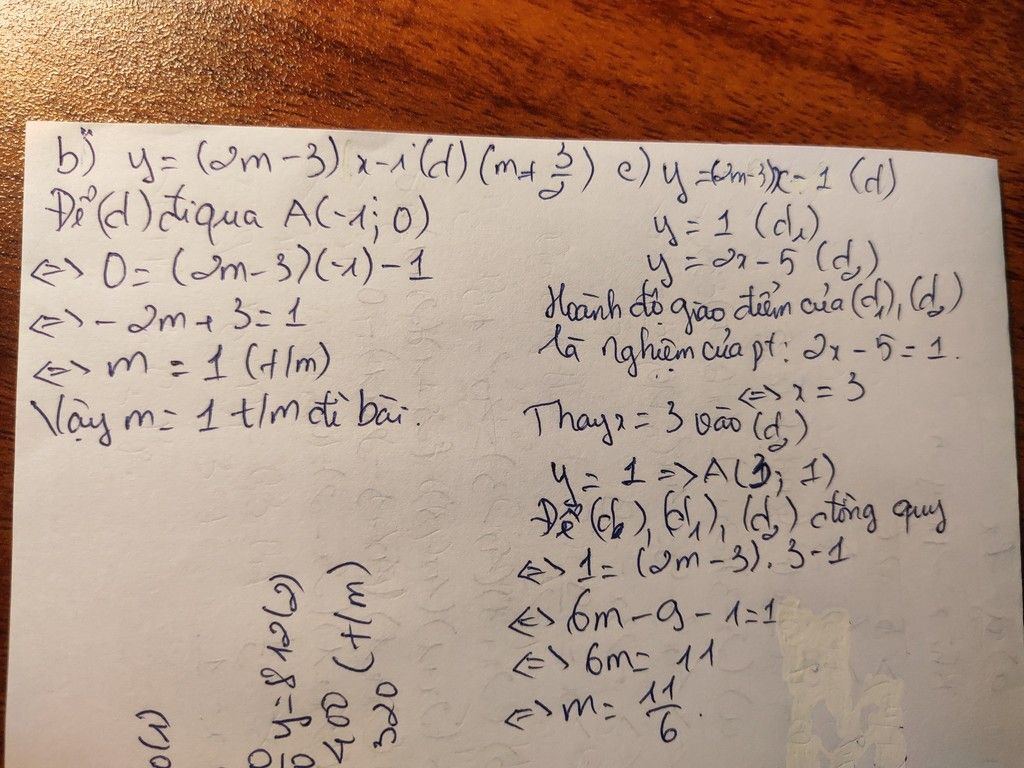 b) y = (2m - 3) x - 1 (d) (m ≠ 3/2)
Để (d) đi qua A(-1; 0)
<=> 0 = (2m - 3)(-1) - 1
<=> - 2m + 3 = 1
<=> m = 1 (t/m)
Vậy m = 1 t/m đề bài.
c) y = (2m-3)x - 1 (d)
y = 1 (d₁)
y = 2x - 5 (d₂)
Hoành độ giao điểm của (d₁), (d₂)
là nghiệm của pt: 2x - 5 = 1.
<=> x = 3
Thay x = 3 vào (d₂)
y = 1 => A(3; 1)
Để (d), (d₁), (d₂) đồng quy
<=> 1 = (2m - 3). 3 - 1
<=> 6m - 9 - 1 = 1
<=> 6m = 11
<=> m = 11/6.
y = 812 (2)
400 (t/m)
320
(1)